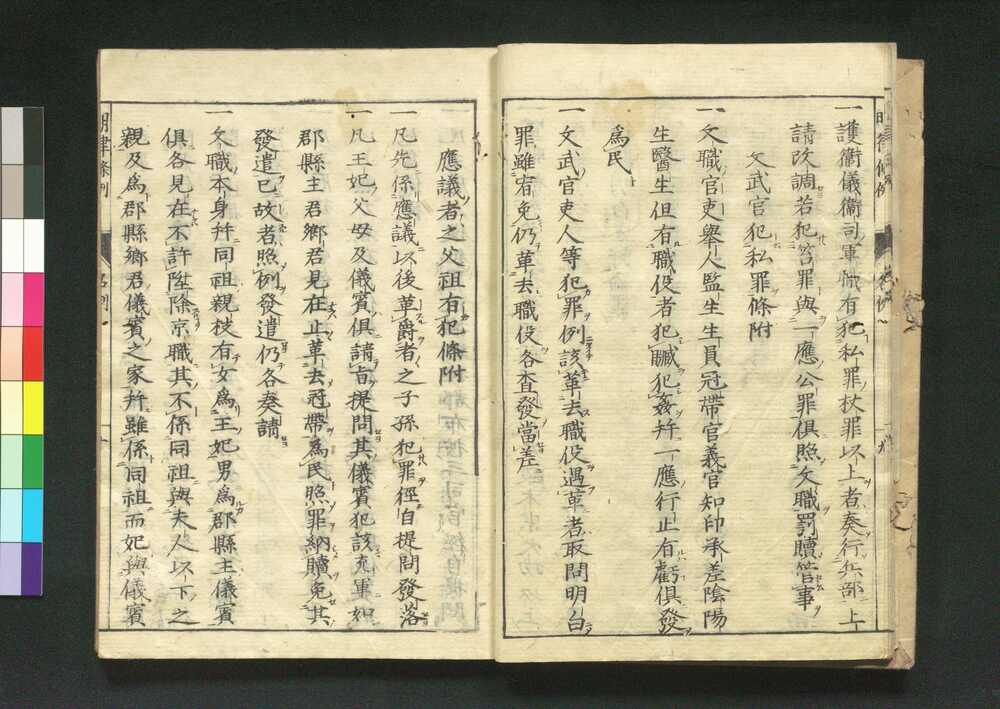 一護衛儀衛司軍職有犯私罪杖罪以上者奏行兵部上
請改調若犯笞罪與一應公罪俱照文職罰贖管事
文武官犯私罪條附
一文職官吏舉人監生生員冠帶官義官知印承差陰陽
生醫生但有職役者犯贓犯姦幷一應行止有虧俱發
爲民
一文武官吏人等犯罪例該革去職役遇革者取問明白
罪雖宥免仍革去職役各査發當差
應議者之父祖有犯條附
一凡先係應議以後革爵者之子孫犯罪徑自提問發落
一凡王妃父母及儀賓俱請旨提問其儀賓犯該充軍如
郡縣主君鄉君見在止革去冠帶爲民照罪納贖免其
發遣已故者照例發遣仍各奏請
一文職本身幷同祖親枝有女爲王妃男爲郡縣主儀賓
俱各見在不許陞除京職其不係同祖與夫人以下之
親及爲郡縣鄉君儀賓之家幷雖係同祖而妃與儀賓
明律條例
名例